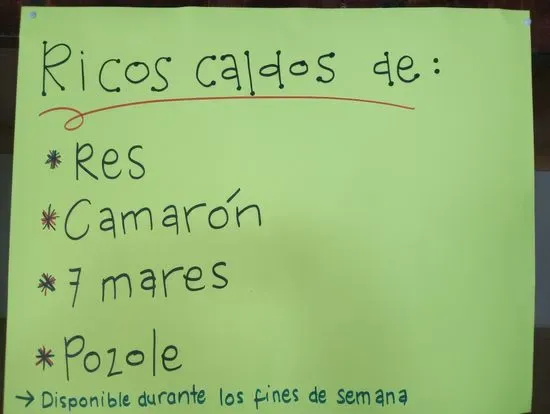 Ricos caldos de:
* Res
* Camarón
* 7 mares
* Pozole
→ Disponible durante los fines de semana